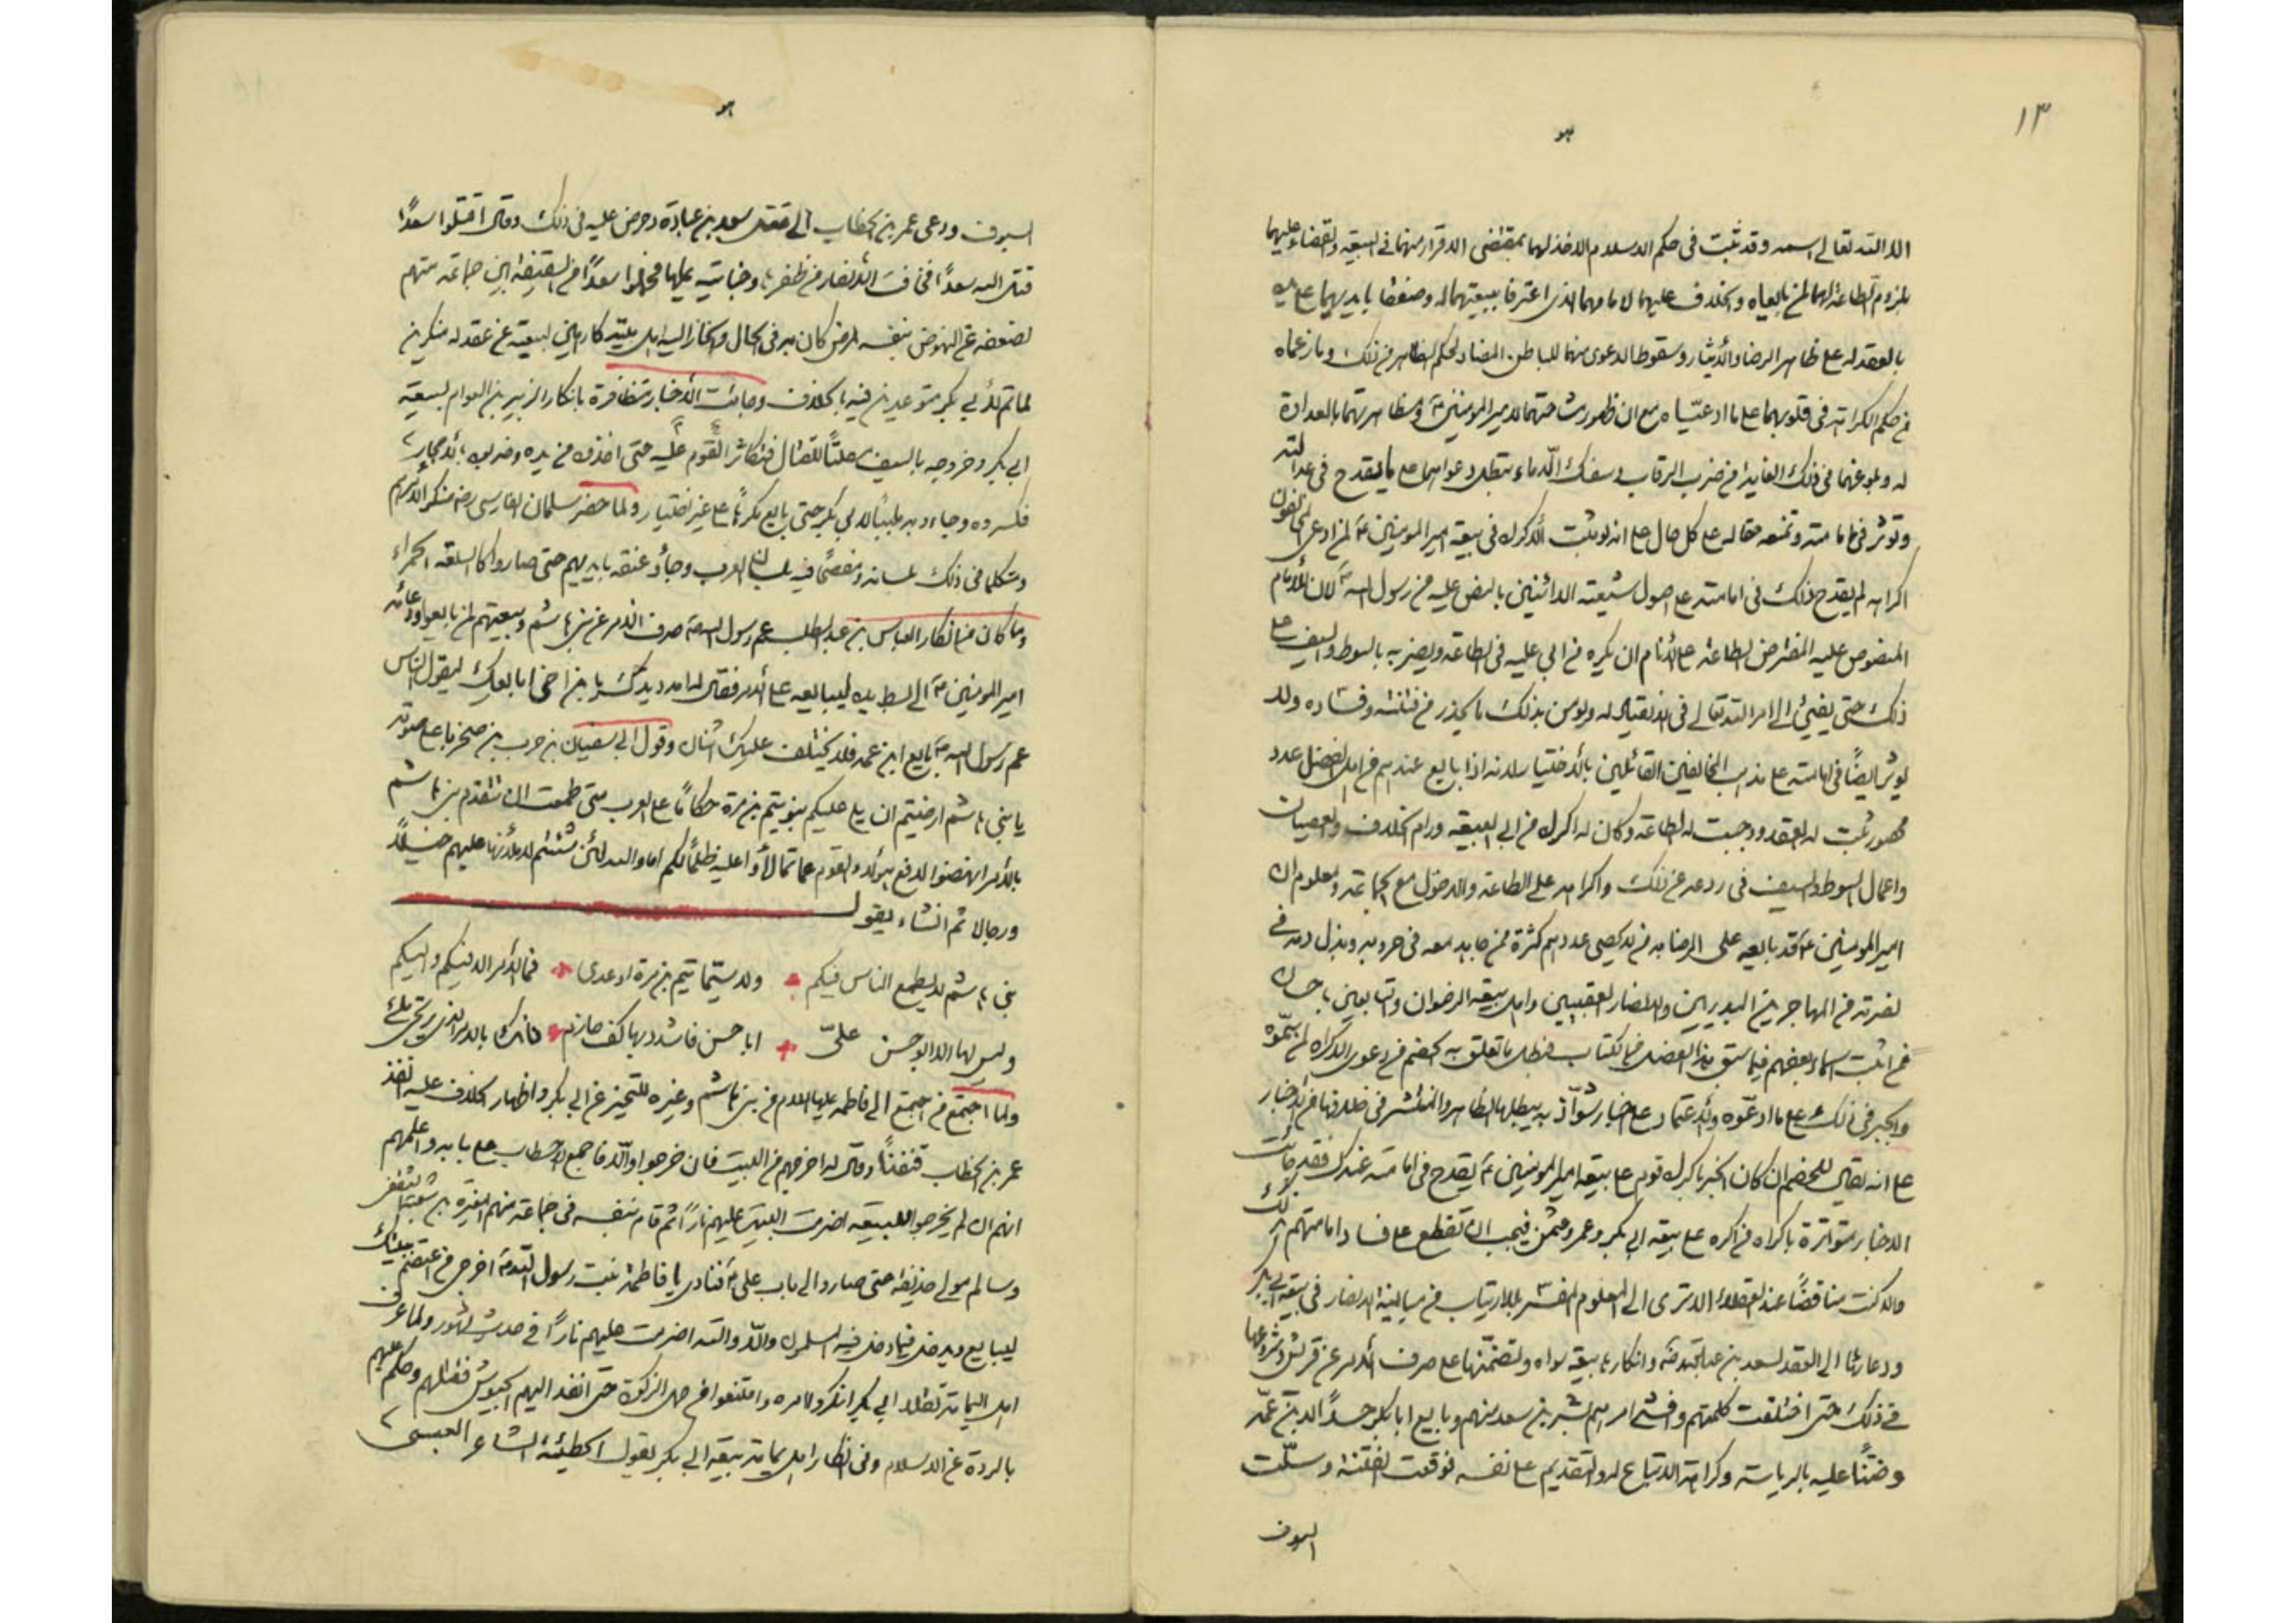 ١٣
هو
الا الله تعالى اسمه وقد ثبت في حكم الاسلام الاخذ لهما بمقتضى الاقرار منهما في البيعة والقضاء عليهما
بلزوم الطاعة لهما لمن بايعاه والخلاف عليهما لامامهما الذي اعترفا ببيعتهما له وصفقا بايديهما على يده
بالعقد له على ظاهر الرضا والايثار وسقوط الدعوى منهما للباطن المضاد لحكم الظاهر في ذلك وما زعماه
من حكم الكراهة في قلوبهما على ما ادعياه مع ان ظهور مشاحتهما لامير المؤمنين ع ومظاهرتهما بالعداوة
له وبلوغهما في ذلك الغاية من ضرب الرقاب وسفك الدماء يبطل دعواهما على ما يقدح في عدالته
وتؤثر في امامته وتمنعه حقا له على كل حال على انه لو ثبت الاكراه في بيعة امير المؤمنين ع لمن ادعى المخالفون
اكراهه لم يقدح ذلك في امامته على اصول شيعته الدائنين بالنص عليه من رسول الله ص لان للامام
المنصوص عليه المفترض الطاعة على الانام ان يكره من ابى عليه في الطاعة ويضربه بالسوط والسيف على
ذلك حتى يفيئ الى امر الله تعالى في الانقياد له ويؤمن بذلك ما يحذر من فتنته وفساده ولا
يؤثر ايضًا في امامته على مذهب المخالفين القائلين بالاختيار لانه اذا بايع عندهم من اهل الفضل عدد
محصور ثبت له العقد ووجبت له الطاعة وكان له اكراه من ابى البيعة ورام الخلاف والعصيان
واعمال السوط والسيف في ردعه عن ذلك واكراهه على الطاعة والدخول مع الجماعة ومعلوم ان
امير المؤمنين ع قد بايعه على الرضا به من لا يحصى عددهم كثرة ممن جاهد معه في حروبه وبذل دمه في
نصرته من المهاجرين البدريين والانصار العقبيين واهل بيعة الرضوان والتابعين باحسان
ممن اثبت اسماء بعضهم فيما سبق هذا الفصل من الكتاب فبطل ما تعلق به الخصم من دعوى الاكراه لمن سموه
والجبر في ذلك على ما ادعوه والاعتماد على اخبار شواذ به يبطلها الظاهر والمنتشر في خلافها من الاخبار
على انه يقال للخصم ان كان الخبر باكراه قوم على بيعة امير المؤمنين ع يقدح في امامته عندك فقد جائت
الاخبار متواترة باكراه من اكره على بيعة ابي بكر وعمر وعثمن فيجب ان تقطع على فساد امامتهم بذلك
والا كنت مناقضًا عند العقلاء الا ترى الى المعلوم المفسر بلا ارتياب من مباينة الانصار في بيعة ابي بكر
ودعائها الى العقد لسعد بن عبادة وانكارها بيعة سواه وتصميمها على صرف الامر عن قريش وشروعها
في ذلك حتى اختلفت كلمتهم وافشى امرهم بشر بن سعد منهم وبايع ابا بكر حسدًا لابن عمه
وضنًّا عليه بالرياسة وكراهة الاتباع له والتقديم على نفسه فوقعت الفتنة وسلّت
السيوف
هو
السيوف ودعى عمر بن الخطاب الى قتل سعد بن عبادة وحرض عليه في ذلك وقال اقتلوا سعدًا
قتل الله سعدًا فخافت الانصار من ظفرها وخباتيه عليها فحملوا سعدًا من السقيفة بين جماعة منهم
لضعفه عن النهوض بنفسه لمرض كان به في الحال وانحاز اليه اهل بيته كارهين لبيعته عن عقد له منكرين
لما تم لابي بكر متوعدين فيه بالخلاف وجائت الاخبار متظافرة بانكار الزبير بن العوام لبيعة
ابي بكر وخروجه بالسيف مصلتًا للقتال فتكاثر القوم عليه حتى اخذوه من يده وضربوه بالاحجار
فكسروه وجاءوا به ملببًا لابي بكر حتى بايع مكرهًا على غير اختيار ولما حضر سلمان الفارسي رضه منكرا لامرهم
ومتكلما في ذلك بلسانه ومفصحًا فيه بلسان العرب وجاؤا عنقه بايديهم حتى صاروا كالسلعة الحمراء
وما كان من انكار العباس بن عبد المطلب عم رسول الله ص صرف الامر عن بني هاشم وبيعتهم لمن بايعوا ودعائه
امير المؤمنين ع الى بسط يده ليبايعه على الامر فقال له امدد يدك يا بن اخي ابايعك ليقول الناس
عم رسول الله ص بايع ابن عمه فلا يختلف عليك اثنان وقول ابي سفيان بن حرب بن صخر باعلى صوته
يا بني هاشم ارضيتم ان يلي عليكم بنو تيم بن مرة حكامًا على العرب متى طمعت ان تتقدم بني هاشم
بالامر انهضوا لدفع هؤلاء القوم عما تمالأوا عليه ظلمًا لكم اما والله لئن شئتم لاملأنها عليهم خيلًا
ورجالا ثم انشاء يقول
بني هاشم لا يطمع الناس فيكم ولا سيما تيم بن مرة او عدى فما الامر الا فيكم واليكم
وليس لها الا ابو حسن علي ابا حسن فاشدد بها كف حازم فانك بالامر الذي يرتجى ملئ
ولما اجتمع من اجتمع الى فاطمة عليها السلام من بني هاشم وغيره للتحيز عن ابي بكر واظهار الخلاف عليه انفذ
عمر بن الخطاب قنفذًا وقال له اخرجهم من البيت فان خرجوا والا فاجمع الاحطاب على بابه واعلمهم
انهم ان لم يخرجوا للبيعة اضرمت البيت عليهم نارًا ثم قام بنفسه في جماعة منهم المغيرة بن شعبة الثقفي
وسالم مولى حذيفة حتى صاروا الى باب علي ع فنادى يا فاطمة بنت رسول الله ص اخرجي من اعتصم ببيتك
ليبايع ويدخل فيما دخل فيه المسلمون والا والله اضرمت عليهم نارًا في حديث مشهور ولما عرف
اهل اليمامة تقلد ابي بكر انكروا امره وامتنعوا من حمل الزكوة حتى انفذ اليهم الجيوش فقتلهم وحكم عليهم
بالردة عن الاسلام وفي انكار اهل يمامة بيعة ابي بكر يقول الحطيئة الشاعر العبسى